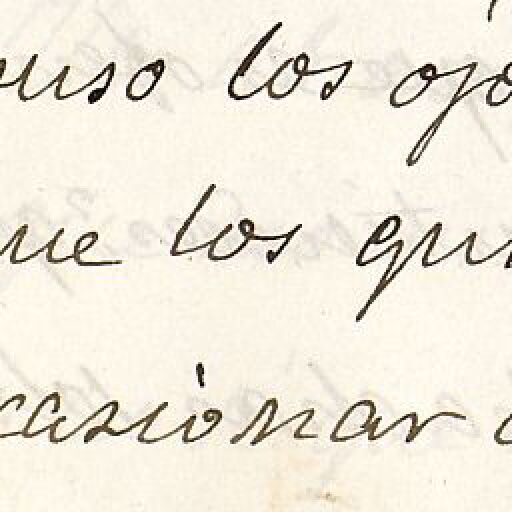 uso los ojo
ue los qui
casionar